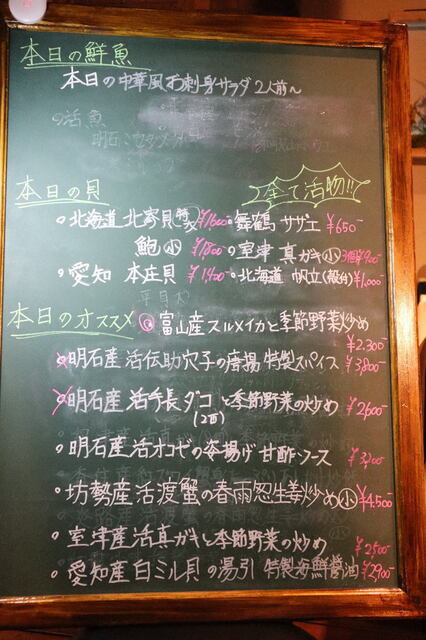 本日の鮮魚
本日の中華風お刺身サラダ 2人前〜
の活魚
本日の貝 全て活物!!
。北海道 北寄貝 特 ¥1600- 。舞鶴 サザエ ¥650-
鮑 小 ¥1800- 。室津 真ガキ 小 3個 ¥900-
。愛知 本庄貝 ¥1400- 。北海道 帆立(殻付) ¥1,000-
本日のオススメ 富山産スルメイカと季節野菜炒め
¥2.300-
。明石産活伝助穴子の唐揚 特製スパイス ¥3,800-
。明石産活手長ダコと季節野菜の炒め ¥2600-
。明石産活オコゼの姿揚げ 甘酢ソース ¥3200-
。坊勢産活渡蟹の春雨葱生姜炒め 小 ¥4.500-
。室津産活真ガキと季節野菜の炒め ¥2500-
。愛知産白ミル貝の湯引 特製海鮮醤油 ¥2,900-